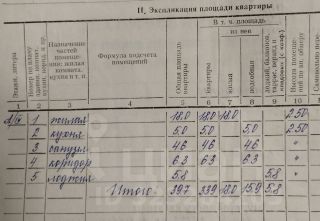 II. Экспликация площади квартиры
В т. ч. площадь
из нее
Этажи, литера
Назначение частей помещения: жилая комната, кухня и т. п.
Формула подсчета помещений
Общая площадь
квартиры
жилая
подсобная
1 2 3 4 5 6 7 8 9 10
1 жилая 18.0 18.0 18.0 2.50
2 кухня 5.0 5.0 5.0 2.50
3 санузел 4.6 4.6 4.6 "
4 коридор 6.3 6.3 6.3 "
5 лоджия 5.8 5.8 "
Итого 39.7 33.9 18.0 15.9 5.8